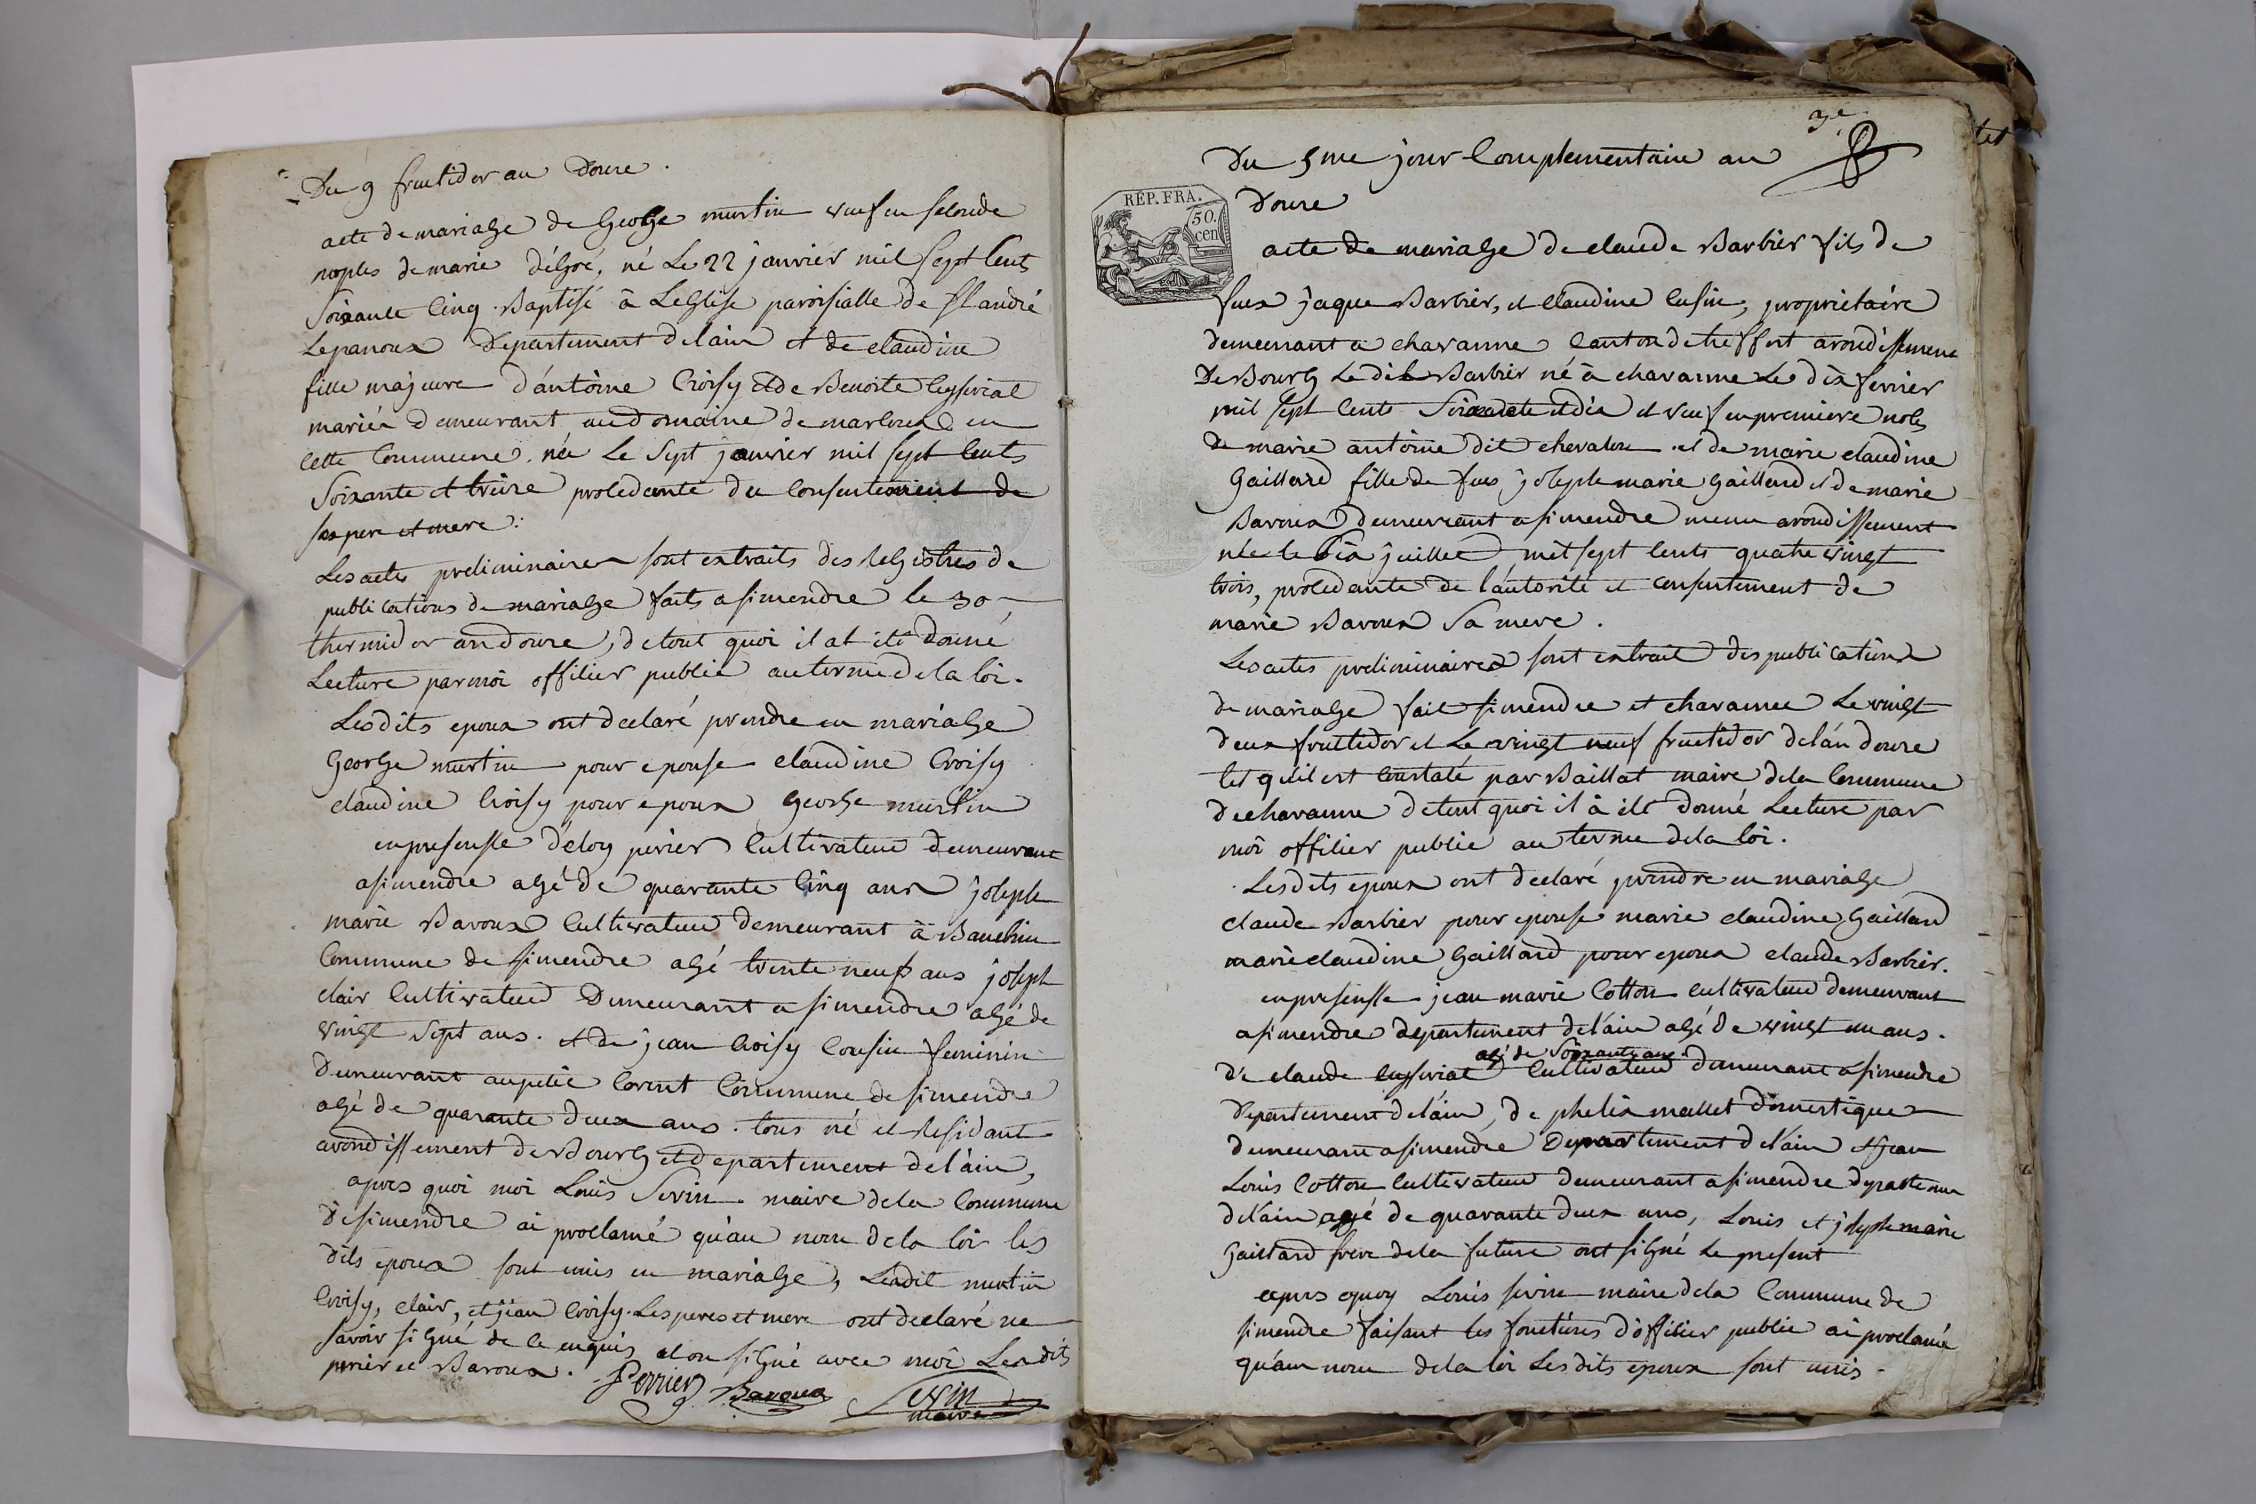 Du 9 fructidor an Douze.
acte de mariage de George murtin veuf en seconde
noples de marie dégoé, né Le 22 janvier mil sept Cents
Soixante Cinq. Baptisé à Leglise paroisialle de st andré
Lepanoux Departement delain et de claudine
fille majeure d'antoine Croisy Et de Benoite leyssiriat
mariés demeurant au domaine de marloux en
cette Commune, née Le Sept janvier mil sept Cents
Soixante et treize procedante du consentement de
ses pere et mere.
Les actes preliminaires sont extraits des Registres de
publications de mariage faits a simendre le 30
thermidor an douze, de tout quoi il at été donné
Lecture par moi officier public au terme de la loi.
Lesdits epoux ont declaré prendre en mariage
George murtin pour epouse claudine Croisy
claudine Croisy pour epoux George murtin
en presensse d'éloy perier Cultivateur demeurant
asimendre agé de quarante Cinq ans joseph
marie Bavoux Cultivateur demeurant à Bauchin
Commune de simendre agé trente neuf ans joseph
clair Cultivateur Demeurant a simendre agé de
vingt Sept ans. et de jean Croisy Cousin feminin
Demeurant aupetit Corent Commune de simendre
agé de quarante deux ans. tous né et Residant
arondissement de Bourg et departement de l'ain,
apres quoi moi Louis Sevin maire de la Commune
De simendre ai proclamé qu'au nom de la loi les
dits epoux sont unis en mariage, Lesdit murtin
Croisy, clair, et jean Croisy. Les peres et mere ont declaré ne
savoir signé de ce enquis et on signé avec moi Lesdits
perier et Bavoux. Perrier Bavoux Sevin
maire
3e
tet
Du 5me jour Complementaire an
Douze
REP. FRA.
50.
cen
acte de mariage de claude Barbier fils de
feux jaque Barbier, et claudine cusin, proprietaire
demeurant a chavanne Canton de treffort arondissement
De Bourg Ledit Barbier né à chavanne Le dix fevrier
mil sept Cents Soixante et dix et veuf en premiere nobs
de marie antoine dit chevalon et de marie claudine
Gaillard fille de feux joseph marie Gaillard et de marie
Bavoux demeurant a simendre meme arondissement
née le dix juillet mil sept Cents quatre vingt
trois, procedante de l'autorité et consentement de
marie Bavoux Sa mere.
Les actes preliminaires sont extrait des publications
de mariage fait simendre et chavannes Le vingt
deux fructidor et Le vingt neuf fructidor de l'an douze
tet quil est constaté par Baillat maire de la Commune
de chavanne de tout quoi il à été donné Lecture par
moi officier public au terme de la loi.
Lesdits epoux ont declaré prendre en mariage
claude Barbier pour epouse marie claudine Gaillard
marie claudine Gaillard pour epoux claude Barbier.
en presensse jean marie Cotton cultivateur demeurant
asimendre departement de l'ain agé de vingt un ans.
agé de Soixante ans
De claude leysseriat Cultivateur demeurant asimendre
Departement de l'ain, de phelix mallet domestique
demeurant asimendre Departement de l'ain et jean
Louis Cotton Cultivateur demeurant asimendre departemen
de l'ain agé de quarante deux ans, Louis et joseph marie
Gaillard frere de la future ont signé Le present
apres quoy Louis Sevin maire de la Commune de
simendre faisant les fonctions d'officier public ai proclamé
qu'au nom de la loi Lesdits epoux sont unis